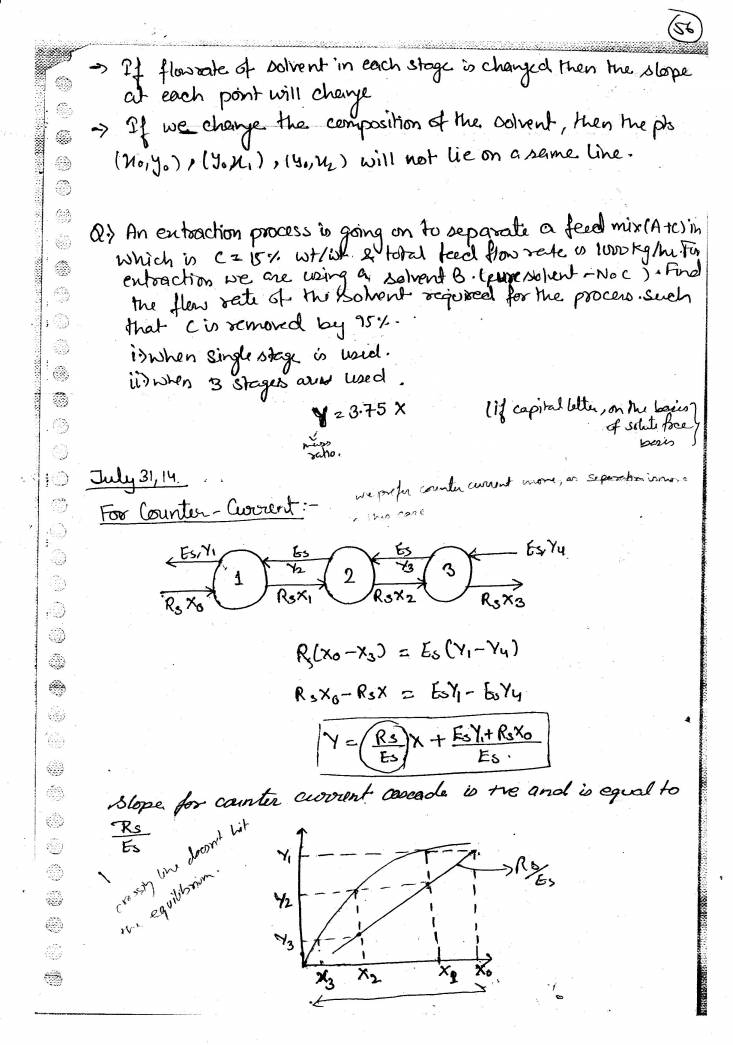 56
→ If flowrate of solvent in each stage is changed then the slope
at each point will change
→ If we change the composition of the solvent, then the pts
(x0,y0), (y0,x1), (y0,x2) will not lie on a same line.
Q:> An extraction process is going on to separate a feed mix(A+C) in
which is C = 15% wt/wt & total feed flow rate is 1000 kg/hr. For
extraction we are using a solvent B. (pure solvent - No C). Find
the flow rate of the solvent required for the process. Such
that C is removed by 95%.
i) when single stage is used.
ii) when 3 stages are used.
Y = 3.75 X (if capital letter, on the basis
of solute free
basis
mass
ratio.
July 31, 14.
we prefer counter current more, as separation is more
in this case
For Counter-Current:-
Es,Y1 Es Es Es,Y4
Y2 Y3
1 2 3
Rs X0 RsX1 RsX2 RsX3
Rs(X0-X3) = Es(Y1-Y4)
RsX0-RsX = EsY1-EsY4
Y = (Rs/Es)X + EsY1+RsX0/Es.
Slope for counter current cascade is +ve and is equal to
Rs
Es
line doesn't hit
equilibrium.
Y1
Rs/Es
Y2
Y3
X3 X2 X1 X0